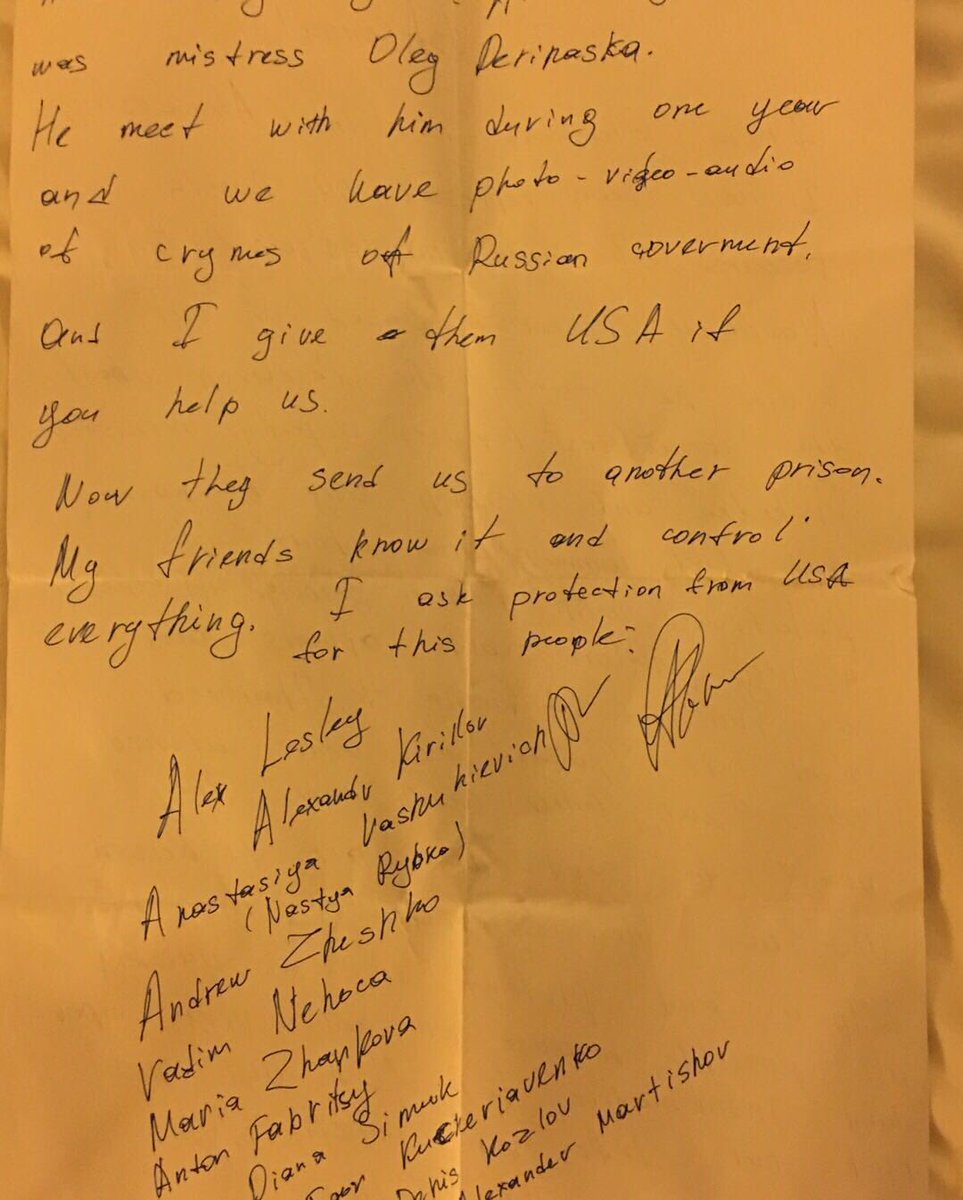 was mistress Oleg Deripaska.
He meet with him during one year
and we have photo-video-audio
of crymes of Russian goverment.
and I give them USA if
you help us.
Now they send us to another prison.
My friends know it and control
everything. I ask protection from USA
for this people:
Alex Lesley
Alexandr Kirillov
Anastasiya Vashukievich
(Nastya Rybka)
Andrew Zheshko
Vadim Nehoca
Maria Zharkova
Anton Fabritsy
Diana Simuk
Kuckeriavenko
Denis Kozlov
Alexander Martishov